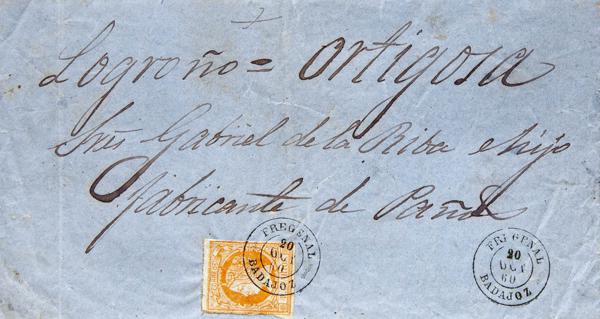 Logroño = Ortigosa
Sres Gabriel de la Riba e hijo
fabricante de Paños
FREGENAL
20
OCT
60
BADAJOZ
FREGENAL
20
OCT
60
BADAJOZ